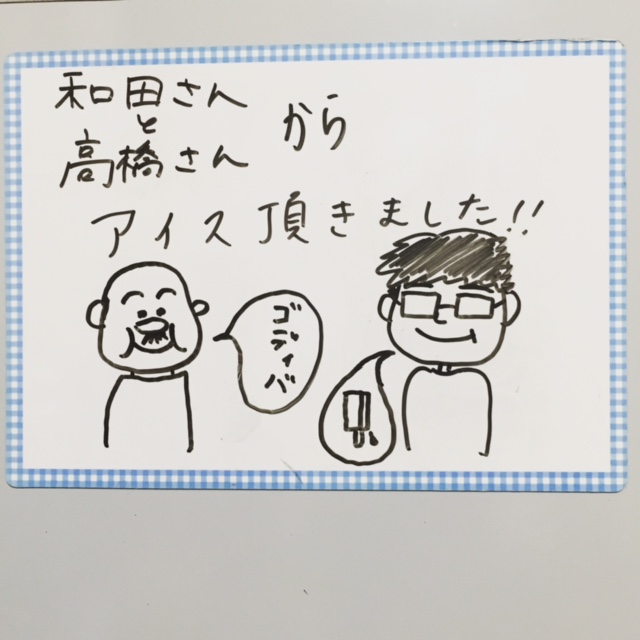 和田さん
と
高橋さん
から
アイス頂きました!!
ゴディバ